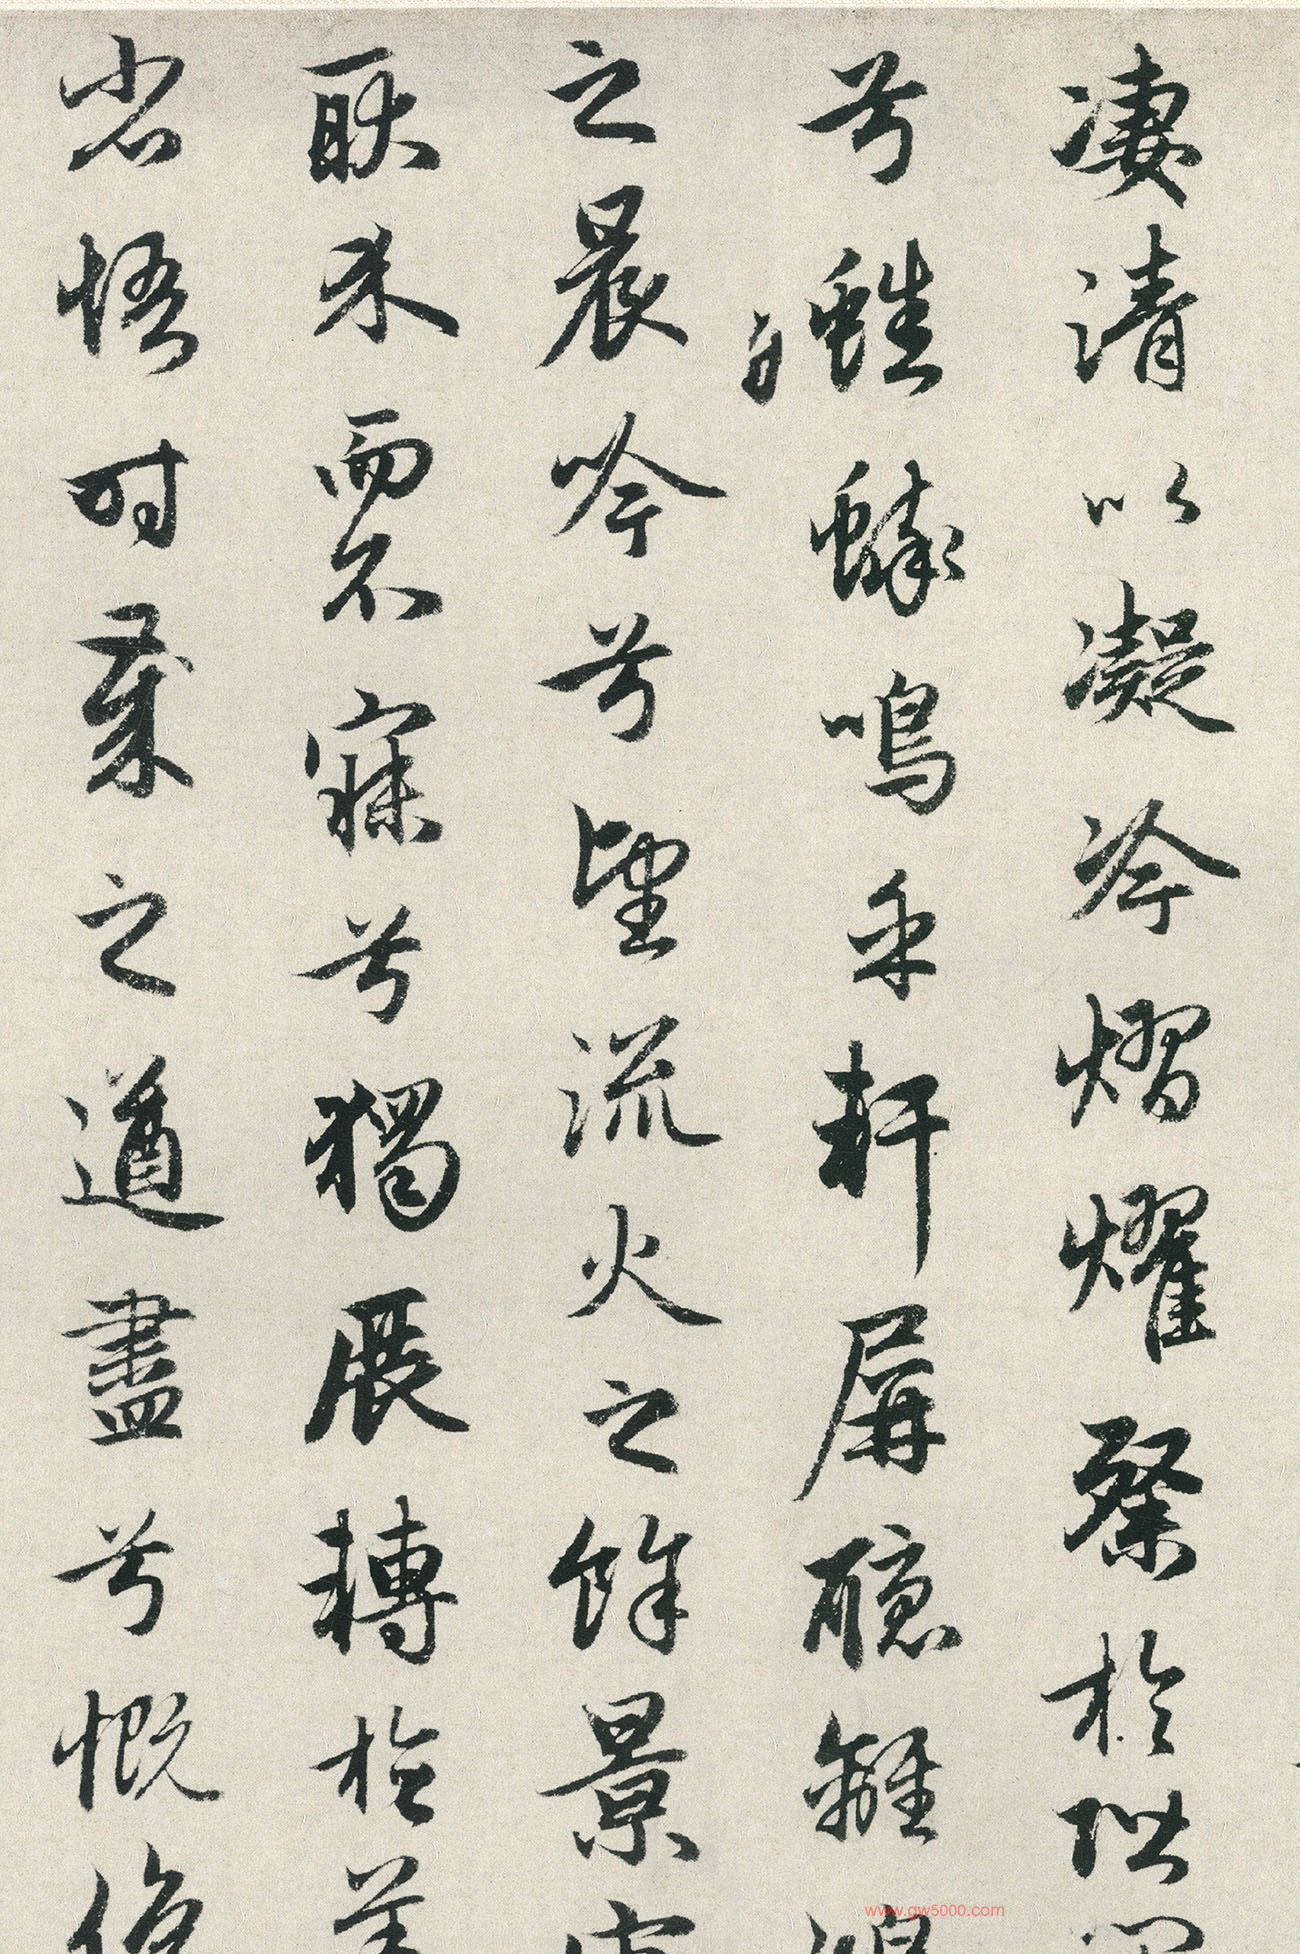 凄清以凝冷熠燿粲於階闥
兮蟋蟀鳴乎軒屏聽離鴻
之晨吟兮望流火之餘景宵
耿介而不寐兮獨展轉於華
省悟時歲之遒盡兮慨俛
www.gw5000.com